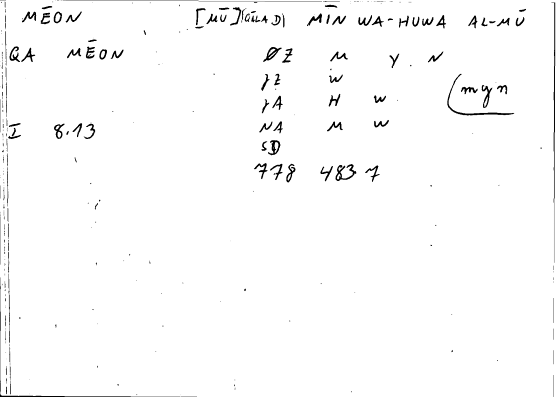 MĒON [MŪ](GĪLAD) MĪN WA-HUWA AL-MŪ
QA MĒON ØZ M Y N
γZ W
γA H W (myn
I 8.13 NA M W
SD
778 483 7